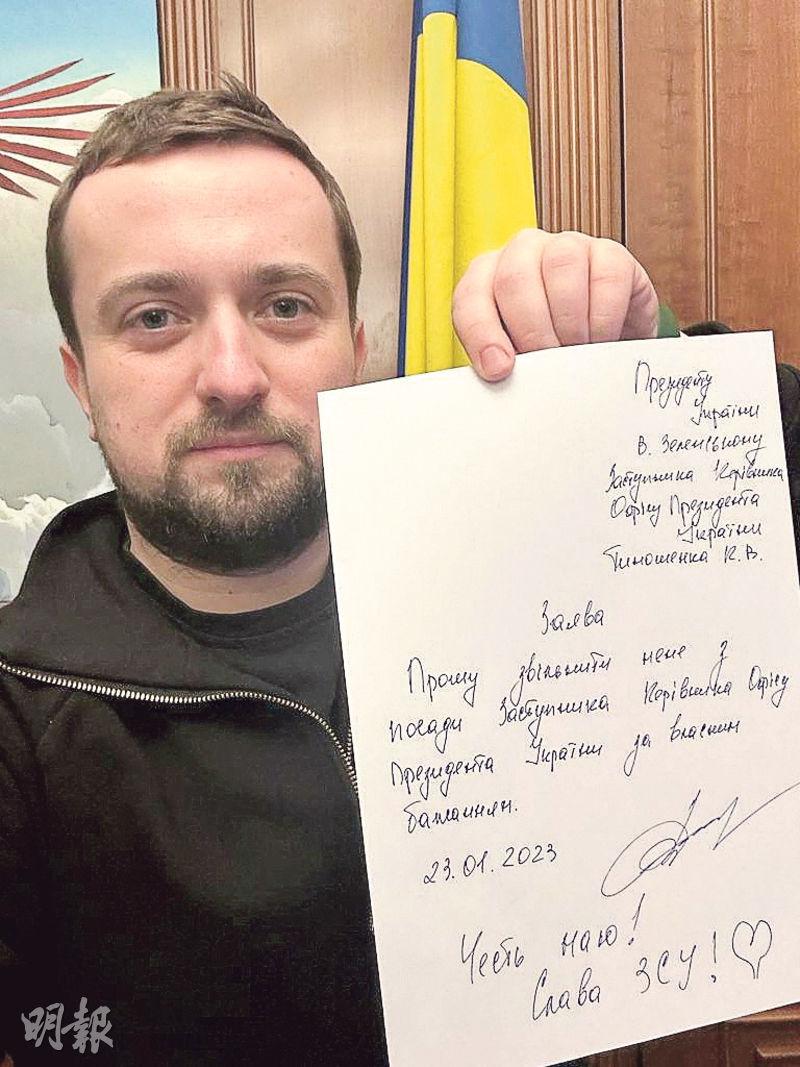 Президенту
України
В. Зеленському
Заступника Керівника
Офісу Президента
України
Тимошенка К.В.
Заява
Прошу звільнити мене з
посади Заступника Керівника Офісу
Президента України за власним
бажанням.
23.01.2023
Честь маю!
Слава ЗСУ!
明報